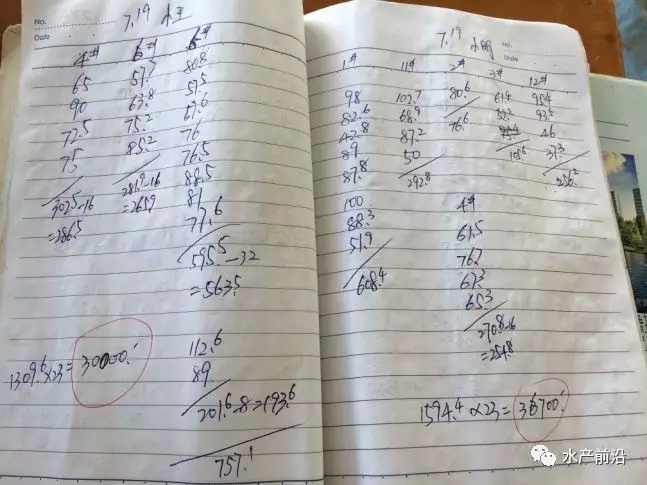 No.
Date
7.19 小王
4# 6# 6#
65 57.7 80.8
90 63.8 57.5
72.5 75.2 67.6
75 85.2 76
302.5-16 281.9-16 76.5
=286.5 =265.9 88.5
81
77.6
595.5-32
=563.5
112.6
89.
201.6-8=193.6
757.1
1309.6×23=30000.
7.19 小明
No.
Date
1# 11# 2# 3# 12#
98 102.7 80.6 61.4 95.4
82.6 68.9 76.6 93.5
42.8 87.2 46
89 50 105.6 37.3
87.8 292.8 256.2
100 4#
88.3 61.5
51.9 76.7
608.4 67.3
65.3
270.8-16
=254.8
1594.4×23=36700.
水产前沿